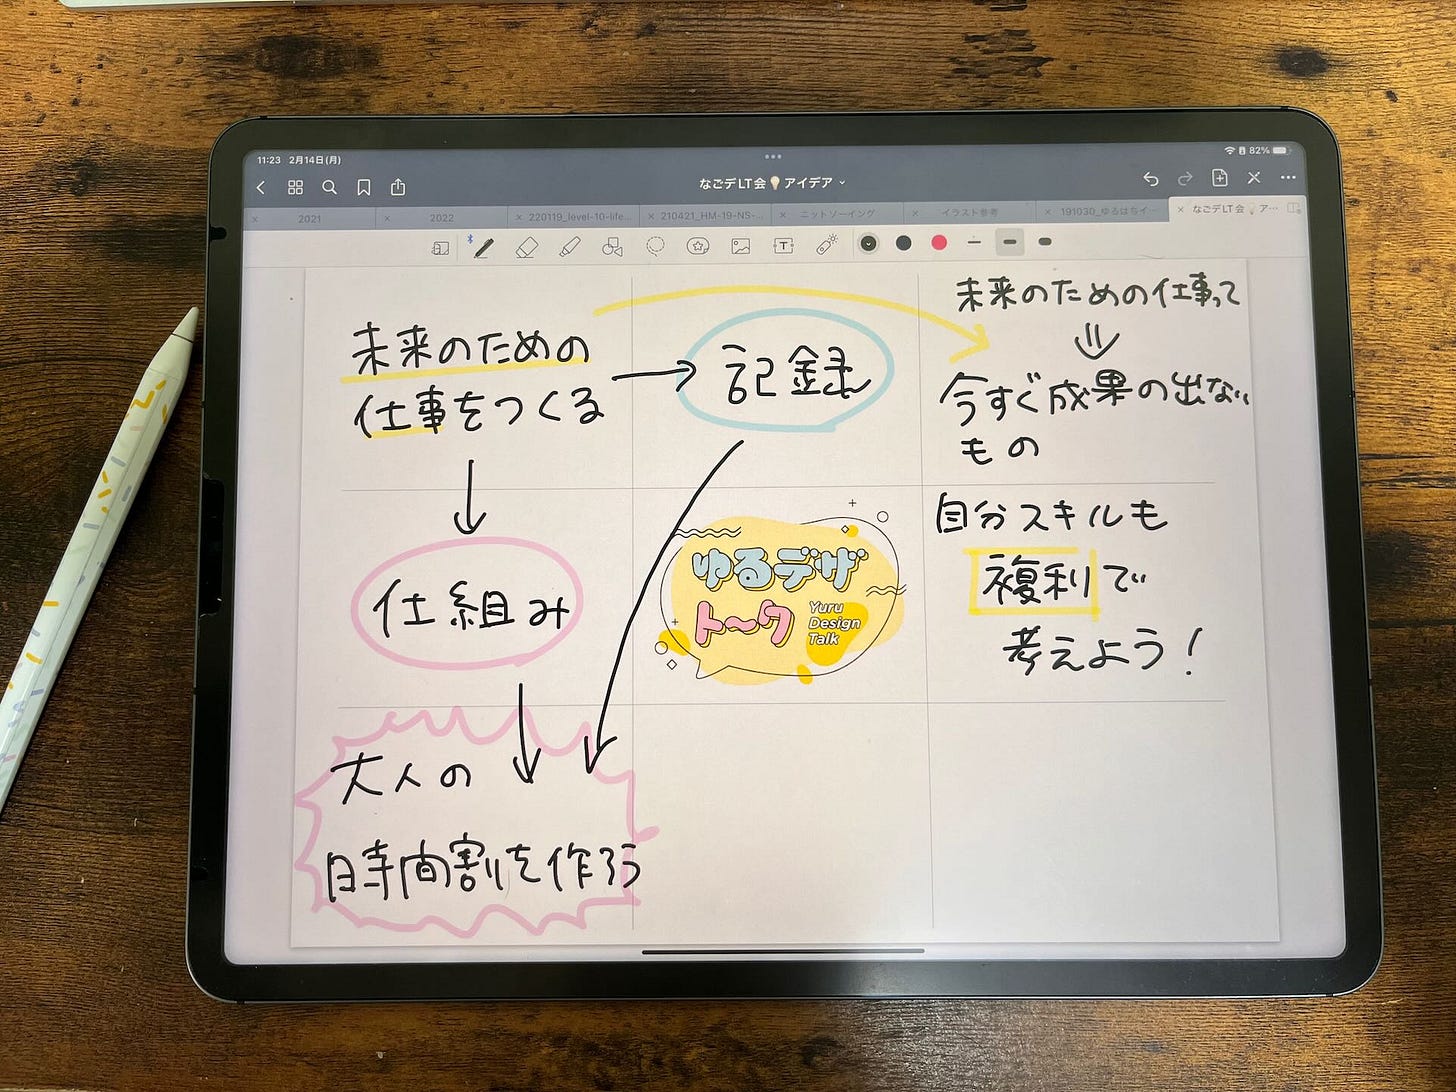 11:23 2月14日(月)
82%
なごデLT会💡アイデア
2021
2022
220119_level-10-life...
210421_HM-19-NS-...
ニットソーイング
イラスト参考
191030_ゆるはちイ...
なごデLT会💡ア...
未来のための
仕事をつくる
記録
未来のための仕事って
今すぐ成果の出ない
もの
仕組み
ゆるデザ
トーク
Yuru
Design
Talk
自分スキルも
複利で
考えよう!
大人の
時間割を作ろう